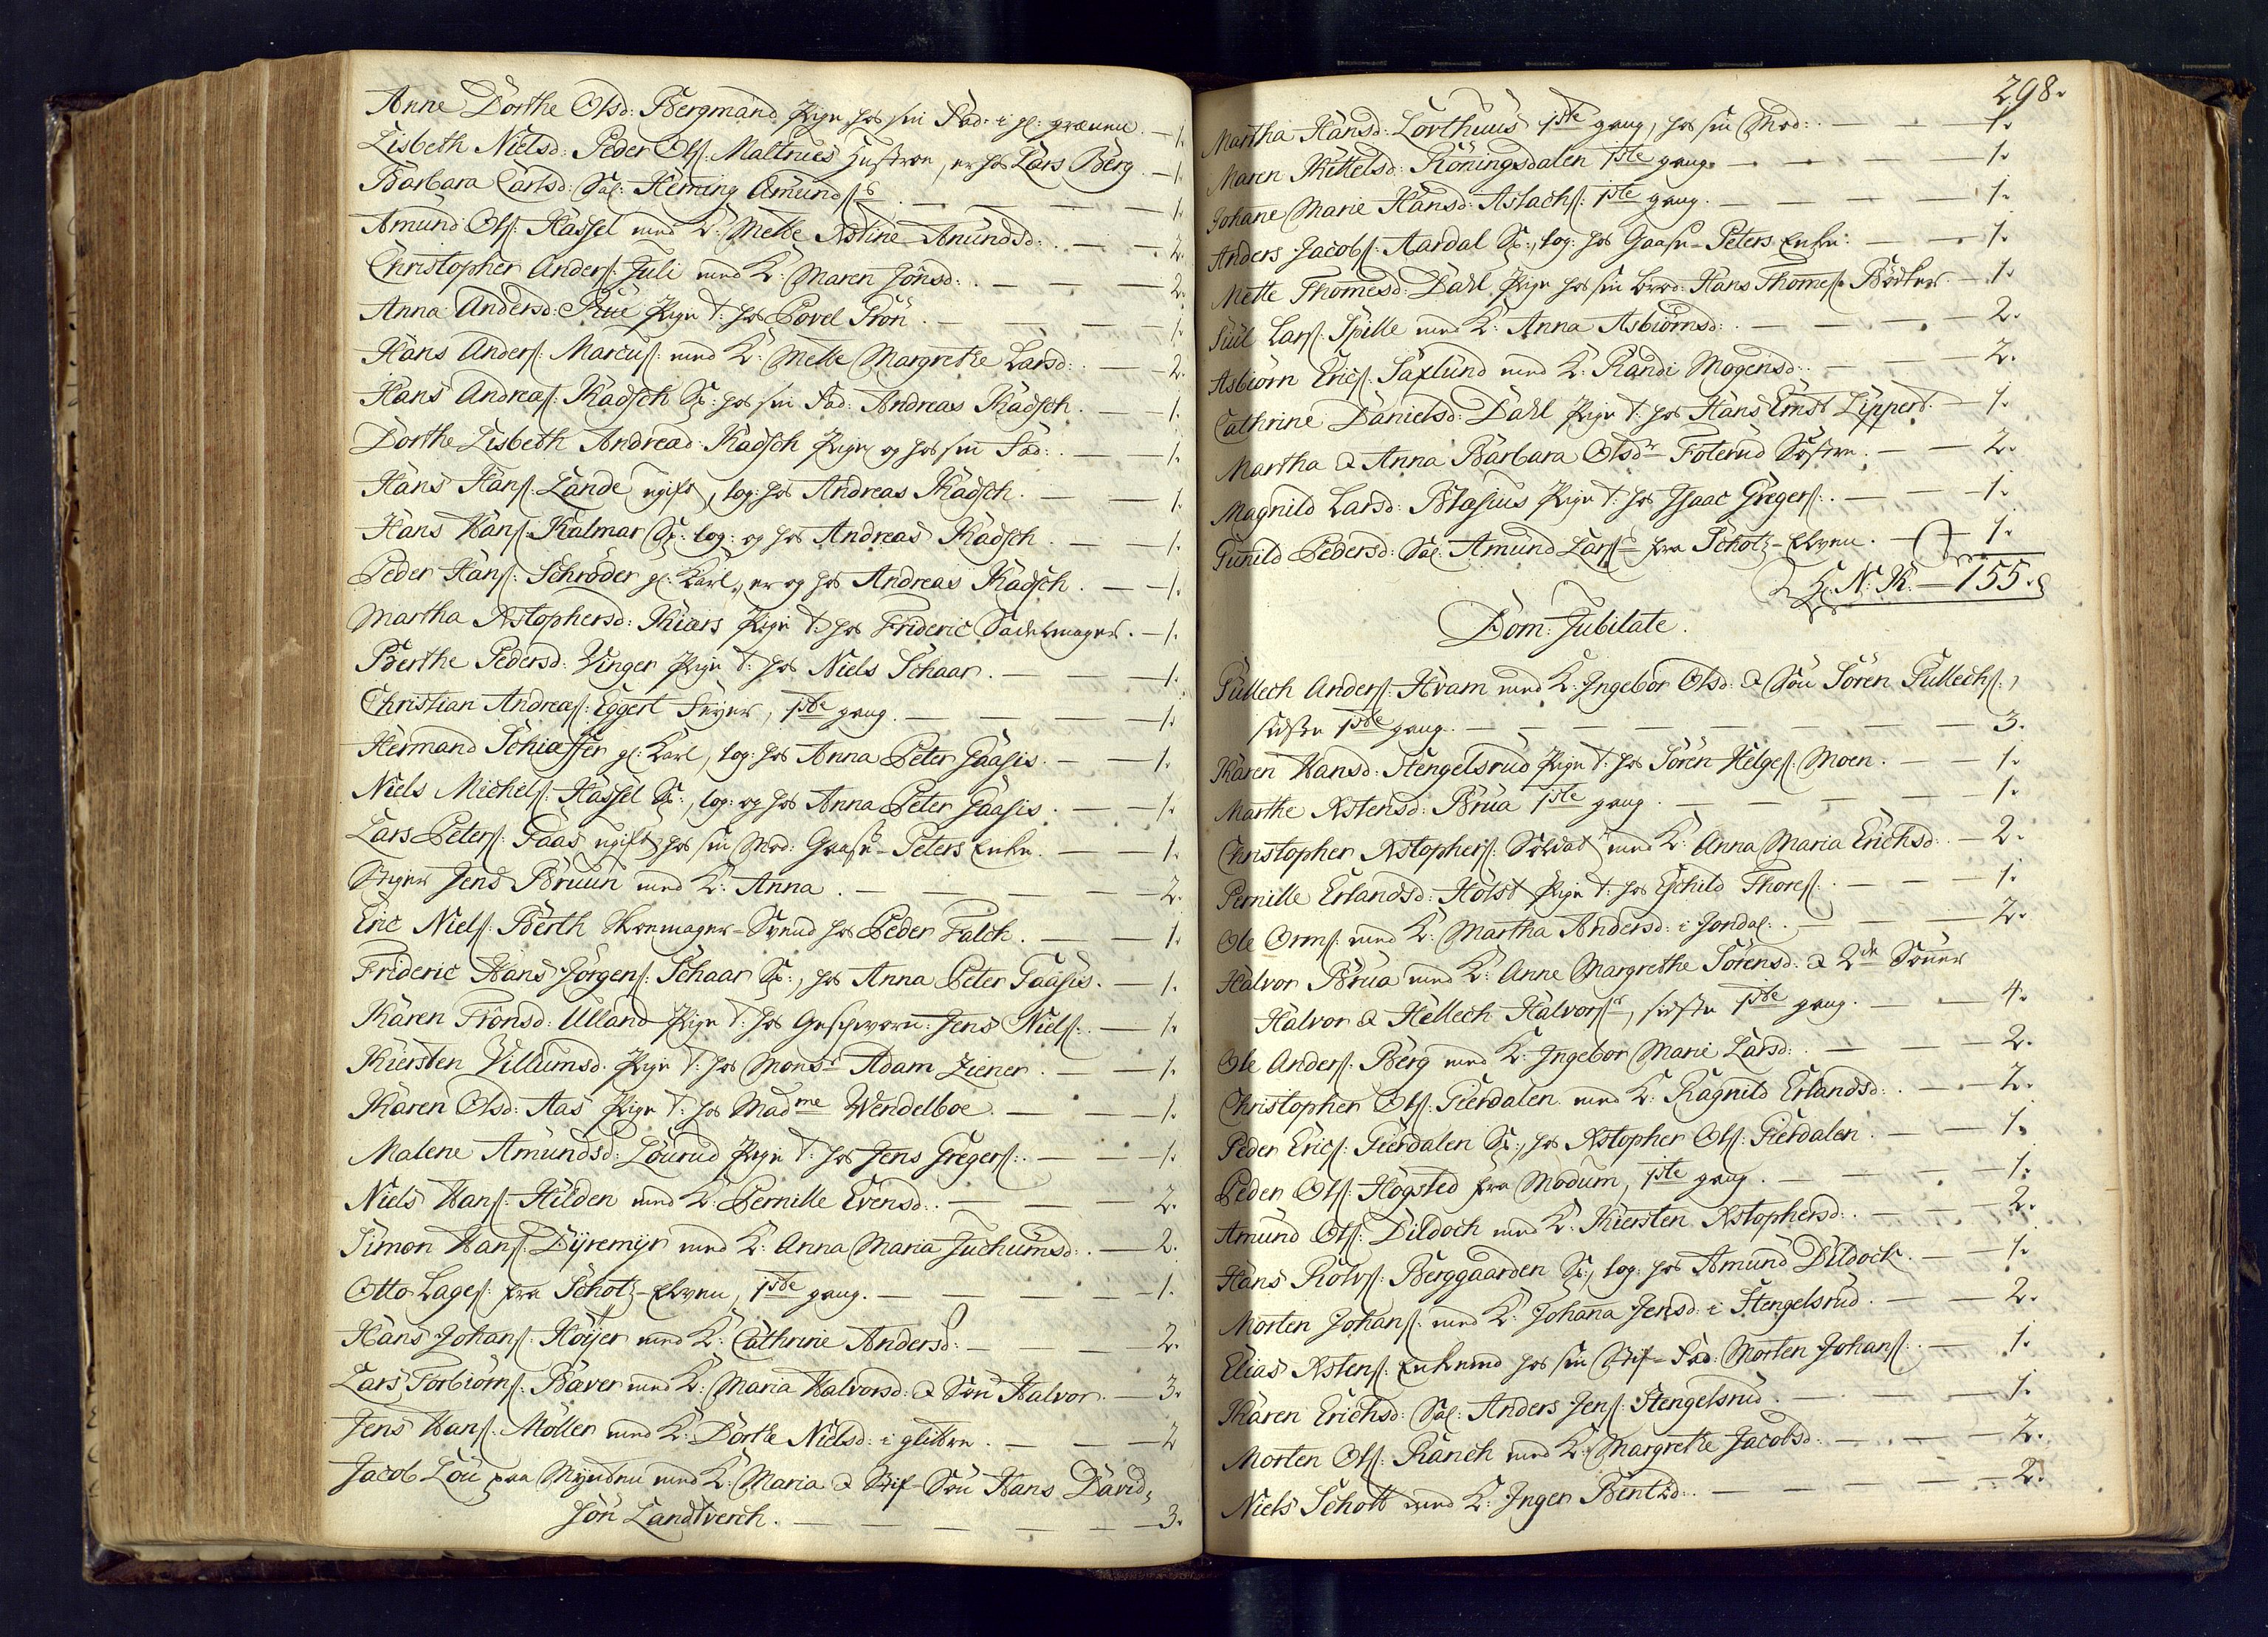 Anne Dorthe Olsd: Bergmand Pige hos sin Fad: i gl: grænne. — 1.
Lisbeth Nielsd: Peder Ols: Maltrues Hustroe, er hos Lars Berg. — 1.
Barbara Carlsd: Sal: Heming Amunds: — 1.
Amund Ols: Hassel med K: Mette Xstine Amundsd: — 2.
Christopher Anders: Juli med K: Maren Jönsd: — 2.
Anna Andersd: Rue Pige t: hos Povel Trön. — 1.
Hans Anders: Marcus: med K: Mette Margrethe Larsd: — 2.
Hans Andreas: Kadsch Sp: hos sin Fad: Andreas Kadsch. 1.
Dorthe Lisbeth Andread: Kadsch Pige og hos sin Fad: — 1.
Hans Hans: Lande ugift, log: hos Andreas Kadsch. — 1.
Hans Hans: Kalmar Sp: log: og hos Andreas Kadsch. — 1.
Peder Hans: Schröder gl: Karl, er og hos Andreas Kadsch. — 1.
Martha Xstophersd: Kiærs Pige t: hos Frideric Sadelmager. — 1.
Berthe Pedersd: Vinger Pige t: hos Niels Schaar. — 1.
Christian Andreas: Eggert Feyer, 1ste gang. — 1.
Hermand Schiæffer gl: Karl, log: hos Anna Peter Gaasis. — 1.
Niels Michels: Hassel Sp:, log: og hos Anna Peter Gaasis. — 1.
Lars Peters: Gaas ugift hos sin Mod: Gaase-Peters Enke. — 1.
Stiger Jens Bruun med K: Anna. — 2.
Eric Niels: Berth Skoemager-Svend hos Peder Falck. — 1.
Frideric Hans Jörgens: Schaar Sp:, hos Anna Peter Gaasis. — 1.
Karen Trönsd: Ulland Pige t: hos Geschworn: Jens Niels: — 1.
Kiersten Villumsd: Pige t: hos Monsr Adam Ziener. — 1.
Karen Olsd: Aas Pige t: hos Madme Wendelboe. — 1.
Malene Amundsd: Lourud Pige t: hos Jens Gregers: — 1.
Niels Hans: Hilden med K: Pernille Evensd: — 2.
Simon Hans: Dyremyr med K: Anna Maria Juchumsd: — 2.
Otto Lages: fra Schotz-Elven, 1ste gang. — 1.
Hans Johans: Höyer med K: Cathrine Andersd: — 2.
Lars Torbiörns: Bæver med K: Maria Halvorsd: & Sön Halvor. — 3.
Jens Hans: Möller med K: Dorthe Nielsd: i glittre. — 2
Jacob Lou paa Mynten med K: Maria & Stif-Sön Hans David-
Sön Landtverch. — 3.
298.
Martha Hansd: Lorthuus 1ste gang, hos sin Mod: — 1.
Maren Kittelsd: Köningsdalen 1ste gang. — 1.
Johane Marie Hansd: Aslachs: 1ste gang. — 1.
Anders Jacobs: Aardal Sp:, log: hos Gaase-Peters Enke: — 1.
Mette Thomesd: Dahl Pige hos sin Brod: Hans Thomes: Bödker. — 1.
Juul Lars: Spille med K: Anna Asbiörnsd: — 2.
Asbiörn Erics: Saxlund med K: Randi Mogensd: — 2.
Cathrine Danielsd: Dahl Pige t: hos Hans Ernst Lippert. — 1.
Martha & Anna Barbara Olsdr Foterud Söstre. — 2.
Magnild Larsd: Blasius Pige t: hos Isaac Gregers: — 1.
Gunild Pedersd: Sal: Amund Lars: fra Schotz-Elven. — 1.
N: K: — 155.
Dom: Jubilate.
Gullech Anders: Hvam med K: Ingebor Olsd: & Sön Sören Gullechs:,
sidste 1ste gang. — 3.
Karen Hansd: Stengelsrud Pige t: hos Sören Helges: Moen. — 1.
Marthe Xstensd: Brua 1ste gang. — 1.
Christopher Xstophers: Soldat med K: Anna Maria Erichsd: — 2.
Pernille Erlandsd: Holst Pige t: hos Eschild Thores: — 1.
Ole Orms: med K: Martha Andersd: i Jondal: — 2.
Halvor Brua med K: Anne Margrethe Sörensd: & 2de Sönner
Halvor & Hellech Halvors:, sidste 1ste gang. — 4.
Ole Anders: Berg med K: Ingebor Marie Larsd: — 2.
Christopher Ols: Gierdalen med K: Ragnild Erlandsd: — 2.
Peder Erics: Gierdalen Sp:, hos Xstopher Ols: Gierdalen. — 1.
Peder Ols: Högsted fra Modum, 1ste gang. — 1.
Amund Ols: Dildoch med K: Kiersten Xstophersd: — 2.
Hans Rolvs: Berggaarden Sp:, log: hos Amund Dildock. — 1.
Morten Johans: med K: Johana Jensd: i Stengelsrud. — 2.
Elias Xstens: Enkemd hos sin Stif-Fad: Morten Johans: — 1.
Karen Erichsd: Sal: Anders Jens: Stengelsrud. — 1.
Morten Ols: Ranch med K: Margrethe Jacobsd: — 2.
Niels Schott med K: Inger Bentzd: — 2.